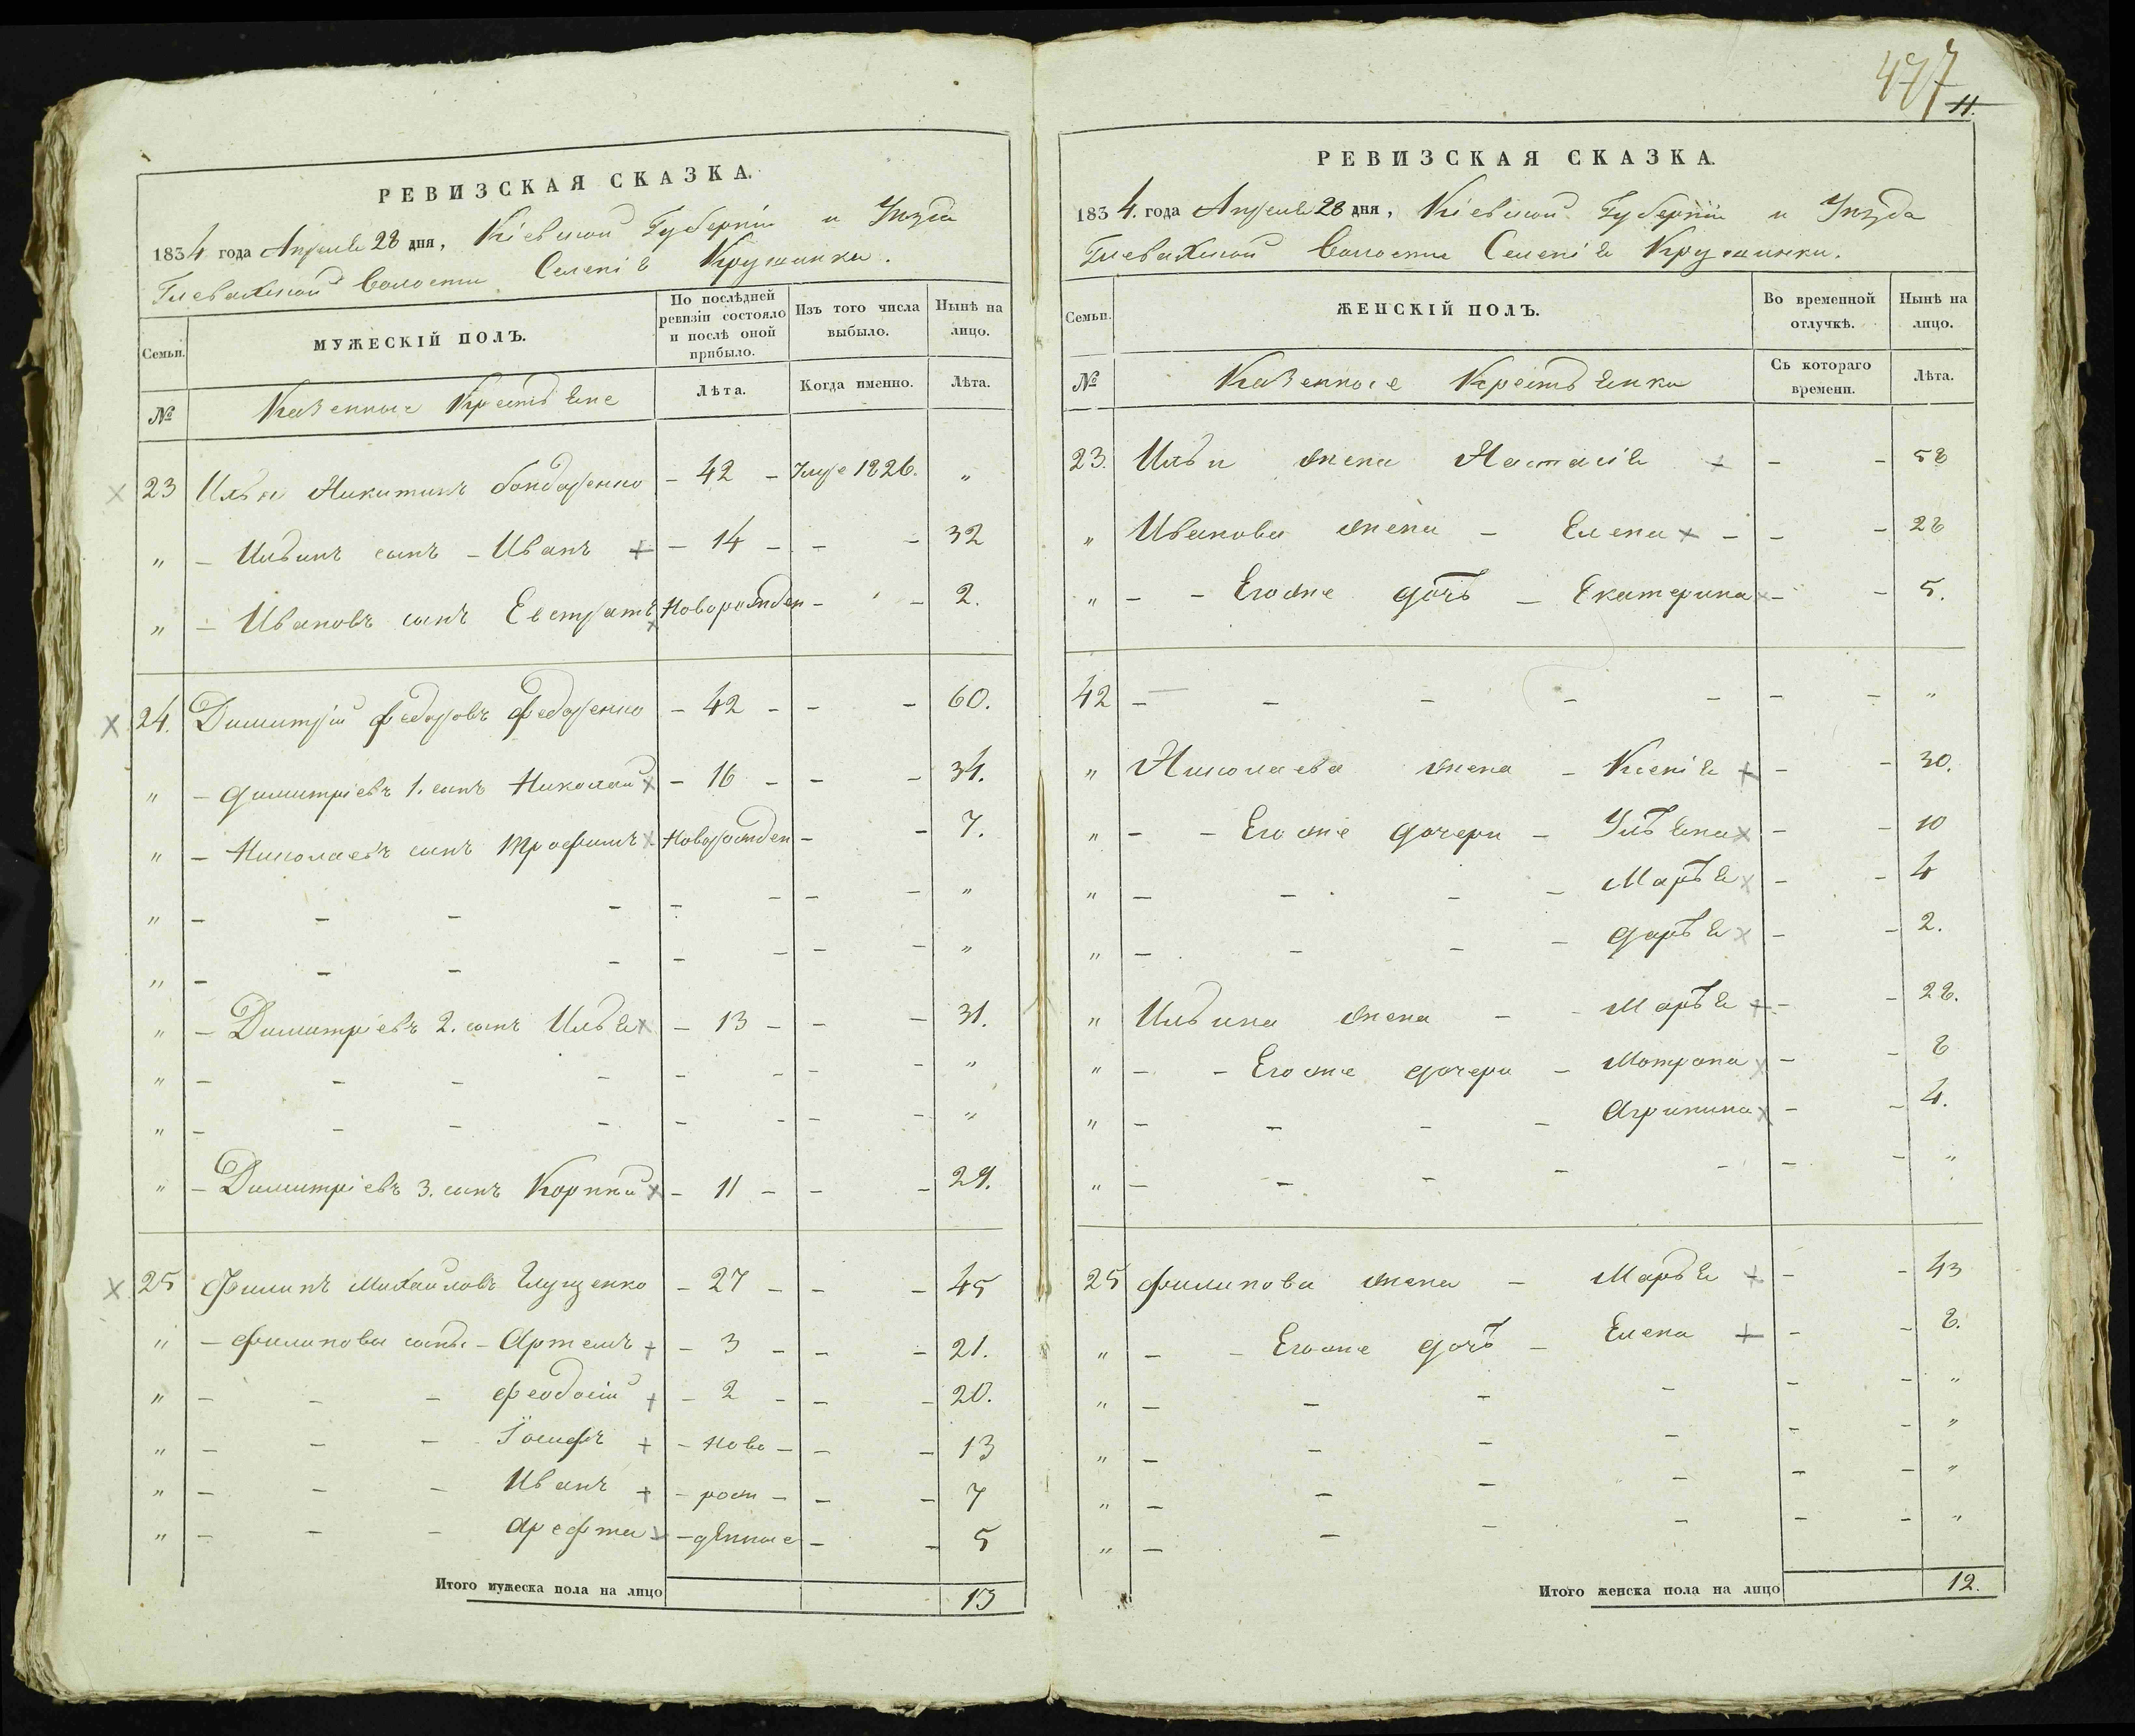 477
11.
РЕВИЗСКАЯ СКАЗКА.
1834 года Апреля 28 дня, Кіевской Губерніи и Уѣзда
Глевахской Волости Селенія Кружинки.
Семьи.
МУЖЕСКІЙ ПОЛЪ.
По послѣдней ревизіи состояло и послѣ оной прибыло.
Изъ того числа выбыло.
Нынѣ на лицо.
№
Казенные Крестьяне
Лѣта.
Когда именно.
Лѣта.
23 Илья Никитинъ Бондаренко - 42 - 1826. "
" - Ильинъ сынъ - Иванъ + - 14 - - - 32
" - Ивановъ сынъ Евстратъ x Новорожден - - 2.
x 24. Димитрій Федоровъ Федоренко - 42 - - - 60.
" - Димитріевъ 1. сынъ Николай x - 16 - - - 34.
" - Николаевъ сынъ Трофимъ x Новорожден - - 7.
" - - - - - - - - "
" - - - - - - - - "
" - Димитріевъ 2. сынъ Илья x - 13 - - - 31.
" - - - - - - - - "
" - - - - - - - - "
" - Димитріевъ 3. сынъ Корній x - 11 - - - 29.
x 25 Филипъ Михайловъ Глущенко - 27 - - - 45
" - Филиповы сыны - Артемъ + - 3 - - - 21.
" - - - Феодосій + - 2 - - - 20.
" - - - Іосифъ + - Ново - - - 13
" - - - Иванъ + - рож - - - 7
" - - - Арефта x - денные - - 5
Итого мужеска пола на лицо 13
РЕВИЗСКАЯ СКАЗКА.
1834. года Апреля 28 дня, Кіевской Губерніи и Уѣзда
Глевахской Волости Селенія Кружинки.
Семьи.
ЖЕНСКІЙ ПОЛЪ.
Во временной отлучкѣ.
Нынѣ на лицо.
№
Казенные Крестьянки
Съ котораго времени.
Лѣта.
23. Ильи жена Настасія + - - 58
" Иванова жена - Елена x - - - 28
" - - Его же дочь - Екатерина x - - 5.
42 - - - - - - - "
" Николаева жена - Ксенія + - - 30.
" - - Его же дочери - Ульяна x - - 10
" - - - - Марья x - - 4
" - - - - Дарья x - - 2.
" Ильина жена - - Марья + - - 28.
" - - Его же дочери - Мотрона x - - 8
" - - - - Агрипина x - - 4.
" - - - - - - - "
25 Филипова жена - Марья + - - 43
" - - Его же дочь - Елена + - - 8.
" - - - - - - "
" - - - - - - "
" - - - - - - "
" - - - - - - "
Итого женска пола на лицо 12.